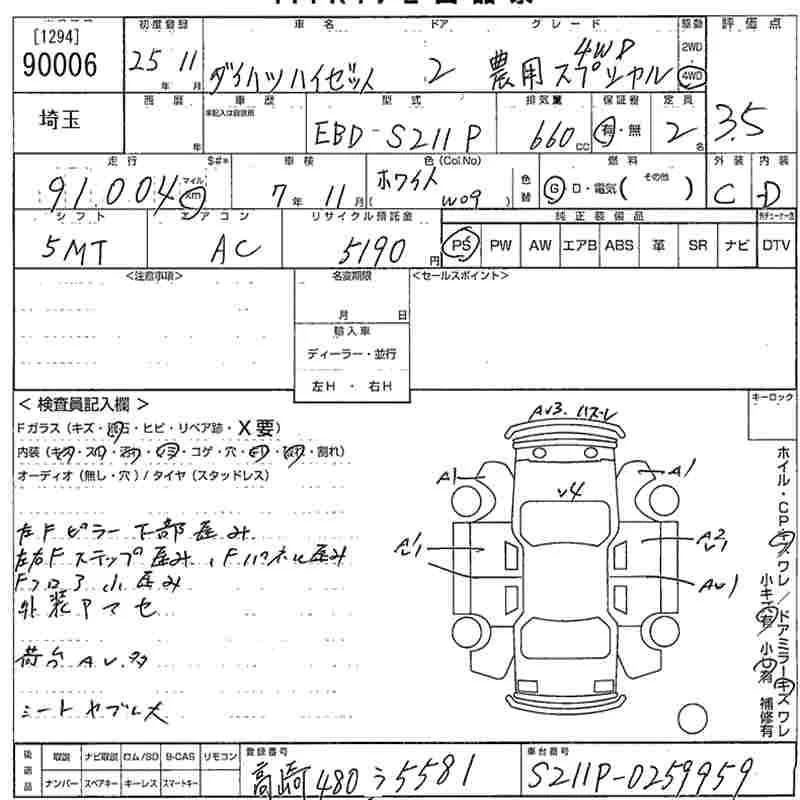 [1294]
90006
初度登録 車名 ドア グレード 駆動 評価点
25年 11月 ダイハツハイゼット 2 農用スペシャル 4WD 2WD 4WD
埼玉
西暦 車歴 型式 排気量 保証書 定員
年 未記入は自家用 EBD-S211P 660cc 有・無 2名 3.5
走行 $#* 車検 色(Col.No) 燃料 外装 内装
91,004 マイル km 7年 11月 ホワイト (W09) 色替 G・D・電気( その他 ) C D
シフト エアコン リサイクル預託金 純正装備品
5MT AC 5190円 PS PW AW エアB ABS 革 SR ナビ DTV
<注意事項> 名変期限 <セールスポイント>
月 日
輸入車
ディーラー・並行
左H ・ 右H
キーロック
<検査員記入欄>
Fガラス(キズ・飛石・ヒビ・リペア跡・X要)
オーディオ(無し・穴)/タイヤ(スタッドレス)
左Fピラー下部歪み
左右Fステップ歪み、Fパネル歪み
Fフロア小歪み
外装アマセ
荷台AU.多
シートヤブレ大
AU3. ハズレ
A1 A1
U4
A2
AU1
後選品 取説 ナビ取説 ロム/SD B-CAS リモコン
ナンバー スペアキー キーレス スマートキー
登録番号
高崎480う5581
車台番号
S211P-0259959